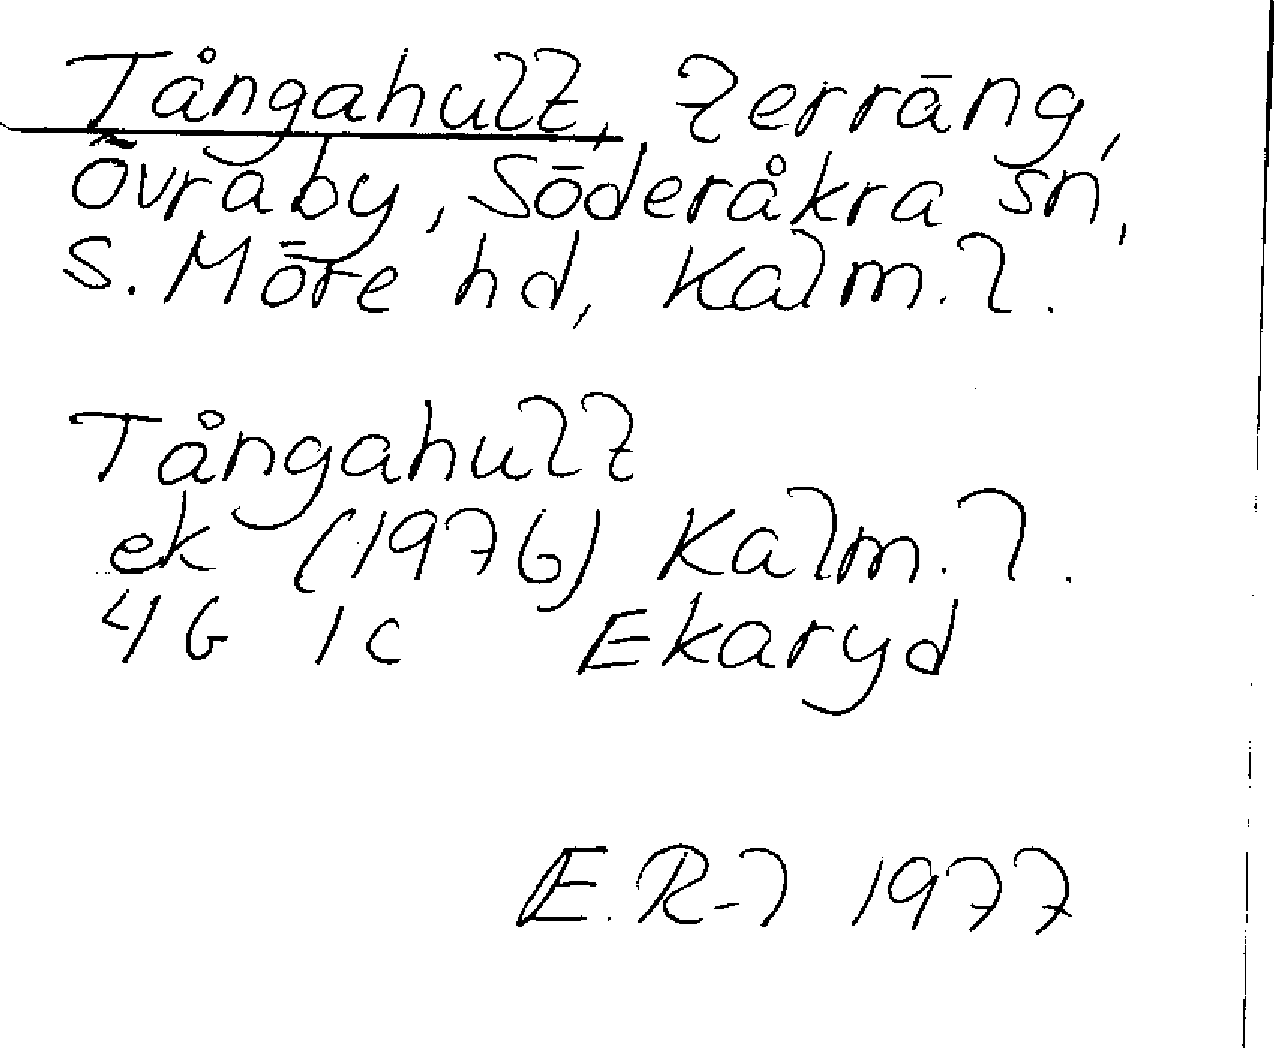 Tångahult, terräng,
Övraby, Söderåkra sn,
S. Möre hd, Kalm. l.
Tångahult
ek (1976) Kalm. l.
4G 1c Ekaryd
E. R-l 1977